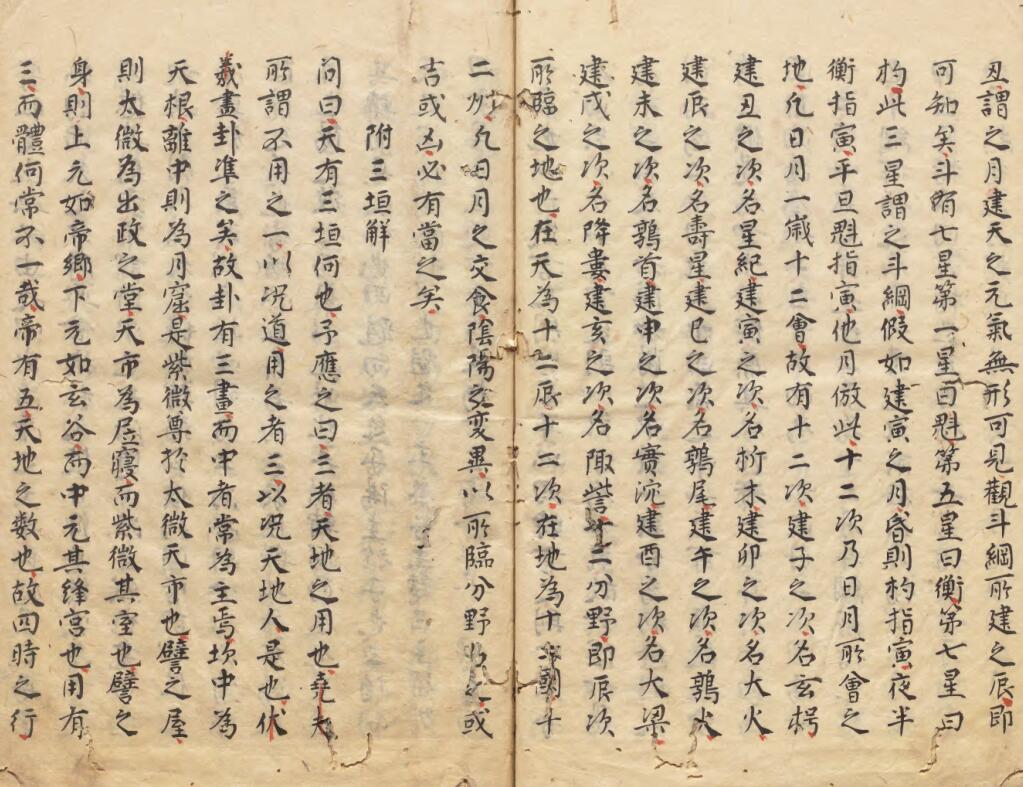 丑謂之月建天之元氣無形可見觀斗綱所建之辰即
可知矣斗有七星第一星曰魁第五星曰衡第七星曰
杓此三星謂之斗綱假如建寅之月昏則杓指寅夜半
衡指寅平旦魁指寅他月倣此十二次乃日月所會之
地凡日月一歲十二會故有十二次建子之次名玄枵
建丑之次名星紀建寅之次名析木建卯之次名大火
建辰之次名壽星建巳之次名鶉尾建午之次名鶉火
建未之次名鶉首建申之次名實沈建酉之次名大梁
建戌之次名降婁建亥之次名陬訾十二分野即辰次
所臨之地也在天為十二辰十二次在地為十二國十
二州凡日月之交食陰陽之變異以所臨分野占之或
吉或凶必有當之矣
附三垣解
问曰天有三垣何也予應之曰三者天地之用也堯夫
所謂不用之一以况道用之者三以况天地人是也伏
羲畫卦準之矣故卦有三畫而中者常為主焉坎中為
天根離中則為月窟是紫微尊於太微天市也譬之屋
則太微為出政之堂天市為居寢而紫微其室也譬之
身則上元如帝鄉下元如玄谷而中元其絳宮也用有
三而體何常不一哉帝有五天地之数也故四時之行